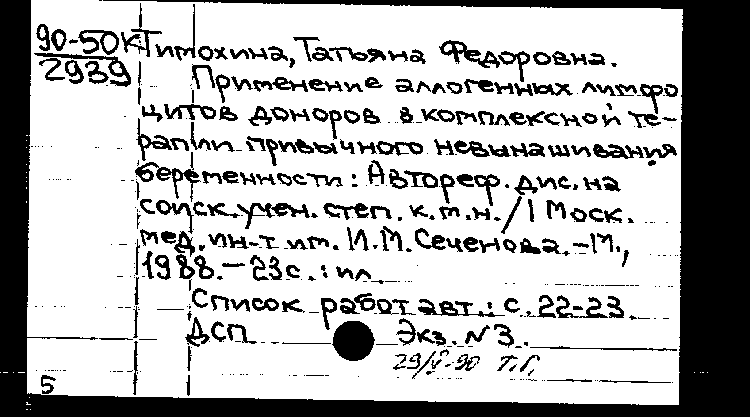 90-50К
2939
Тимохина, Татьяна Федоровна.
Применение аллогенных лимфо
цитов доноров в комплексной те-
рапии привычного невынашивания
беременности: Автореф. дис. на
соиск. учен. степ. к.м.н. / I Моск.
мед. ин-т им. И.М. Сеченова. - М.,
1988. - 23с. : ил.
Список работ авт.: с. 22-23.
ДСП Экз. N 3.
29/V-90 Т.Г.
5